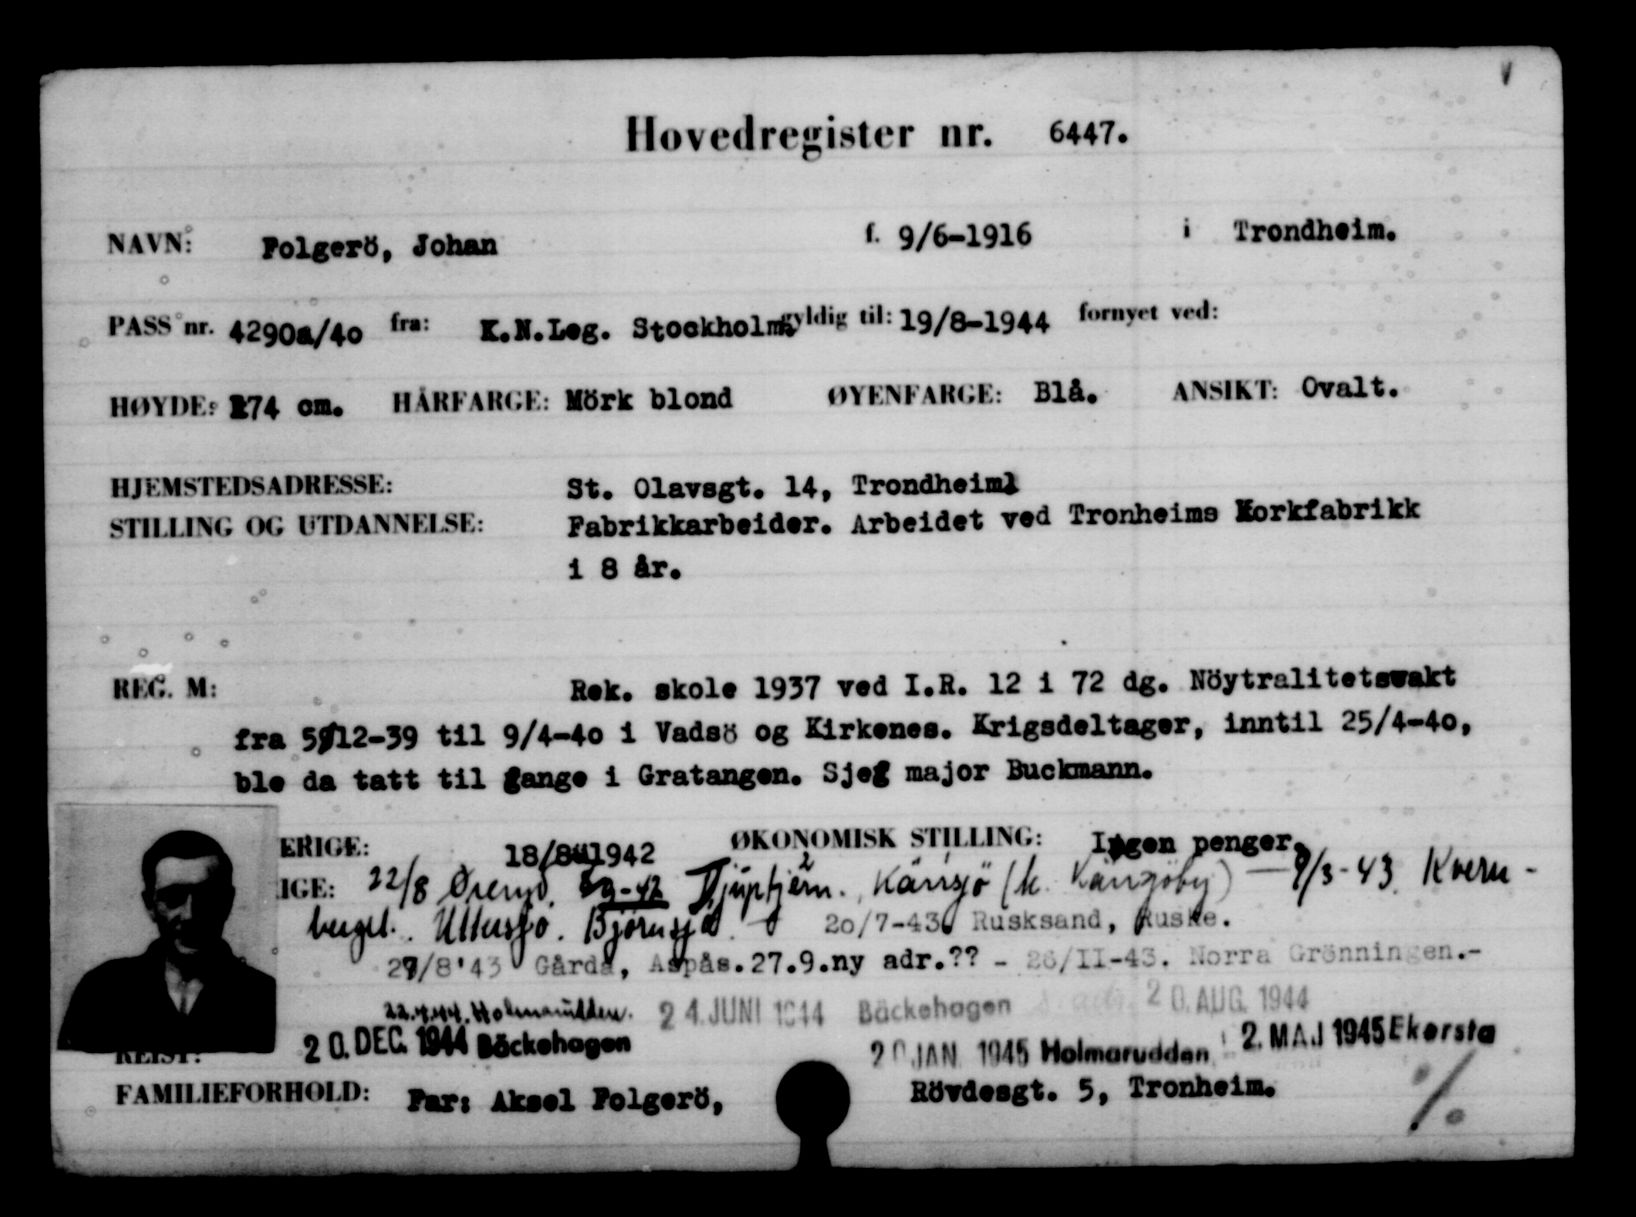 Hovedregister nr. 6447.
NAVN: Folgerö, Johan f. 9/6-1916 i Trondheim.
PASS nr. 4290a/40 fra: K.N.Leg. Stockholm. gyldig til: 19/8-1944 fornyet ved:
HØYDE: 174 cm. HÅRFARGE: Mörk blond ØYENFARGE: Blå. ANSIKT: Ovalt.
HJEMSTEDSADRESSE: St. Olavsgt. 14, Trondheim
STILLING OG UTDANNELSE: Fabrikkarbeider. Arbeidet ved Tronheims Korkfabrikk
i 8 år.
REG. M: Rek. skole 1937 ved I.R. 12 i 72 dg. Nöytralitetsvakt
fra 5/12-39 til 9/4-40 i Vadsö og Kirkenes. Krigsdeltager, inntil 25/4-40,
ble da tatt til fange i Gratangen. Sjef major Buckmann.
ERIGE: 18/8-1942 ØKONOMISK STILLING: Ingen penger.
IGE: 22/8 Øreryd. Djuptjern. Kärrsjö 9/3-43 Kvern-
berget. Ullersjö. Björnsjö. 20/7-43. Rusksand, Ruske.
27/8'43 Gårda, Aspås. 27.9. ny adr.?? - 26/II-43. Norra Grönningen.-
22.4.44. Holmarudden. 24. JUNI 1944 Bäckehagen 20. AUG. 1944
20. DEC. 1944 Bäckehagen 20 JAN 1945 Holmarudden 2. MAJ 1945 Ekersta
REIST:
FAMILIEFORHOLD: Far: Aksel Folgerö, Rövdesgt. 5, Tronheim.